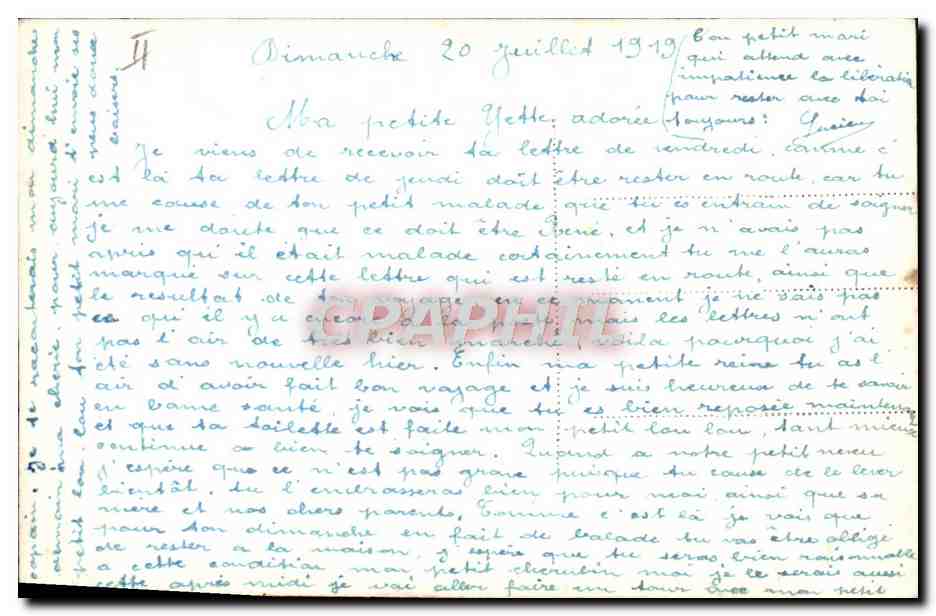 II
Dimanche 20 Juillet 1919
Ma petite Yette adorée
Je viens de recevoir ta lettre de vendredi, comme c'
est là ta lettre de jeudi doit être rester en route, car tu
me cause de ton petit malade que tu es entrain de soigner
je me doute que ce doit être René, et je n'avais pas
apris qu'il était malade certainement tu me l'auras
marqué sur cette lettre qui est resté en route, ainsi que
le resultat de ton voyage en ce moment je ne sais pas
ce qu'il y a mais les lettres n'ont
pas l'air de très bien marché, voila pourquoi j'ai
été sans nouvelle hier. Enfin ma petite reine tu as l'
air d'avoir fait bon voyage et je suis heureux de te savoir
en bonne santé, je vois que tu es bien reposée maintenant
et que ta toilette est faite mon petit lou lou, tant mieux
continue a bien te soigner. Quand a notre petit neveu
j'espère que ce n'est pas grave puisque tu cause de le lever
bientôt, tu l'embrasseras bien pour moi ainsi que sa
mere et nos chers parents. Comme c'est là je vois que
pour ton dimanche en fait de balade tu vas être obligé
de rester a la maison, j'espère que tu seras bien raisonnable
a cette condition mon petit cherubin moi je le serais aussi
cette après midi je vai aller faire un tour avec mon petit
copain. Je te raconterais mon dimanche
demain ma cherie, pour aujourd'hui mon
petit lou lou ton petit mari t'envoie ses
plus doux
baisers
Ton petit mari
qui attend avec
impatience la libération
pour rester avec toi
toujours: Lucien
GRAPHIL